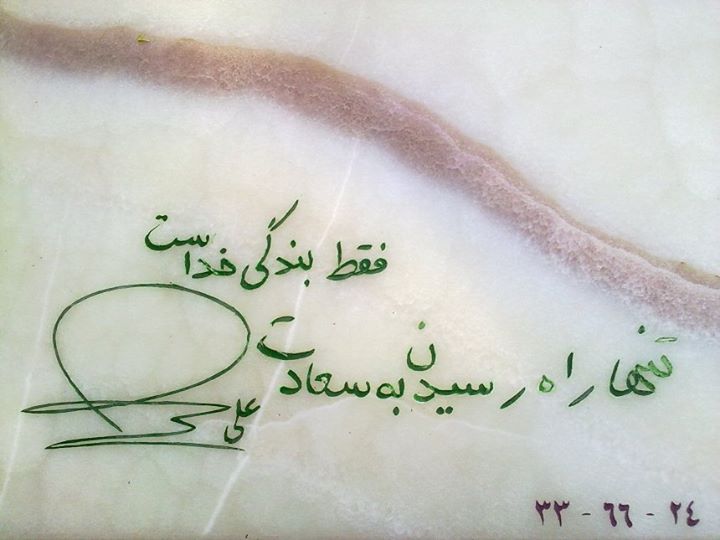 فقط بندگی خداست
تنها راه رسیدن به سعادت
علی
۳۳ - ۶۶ - ۲۴